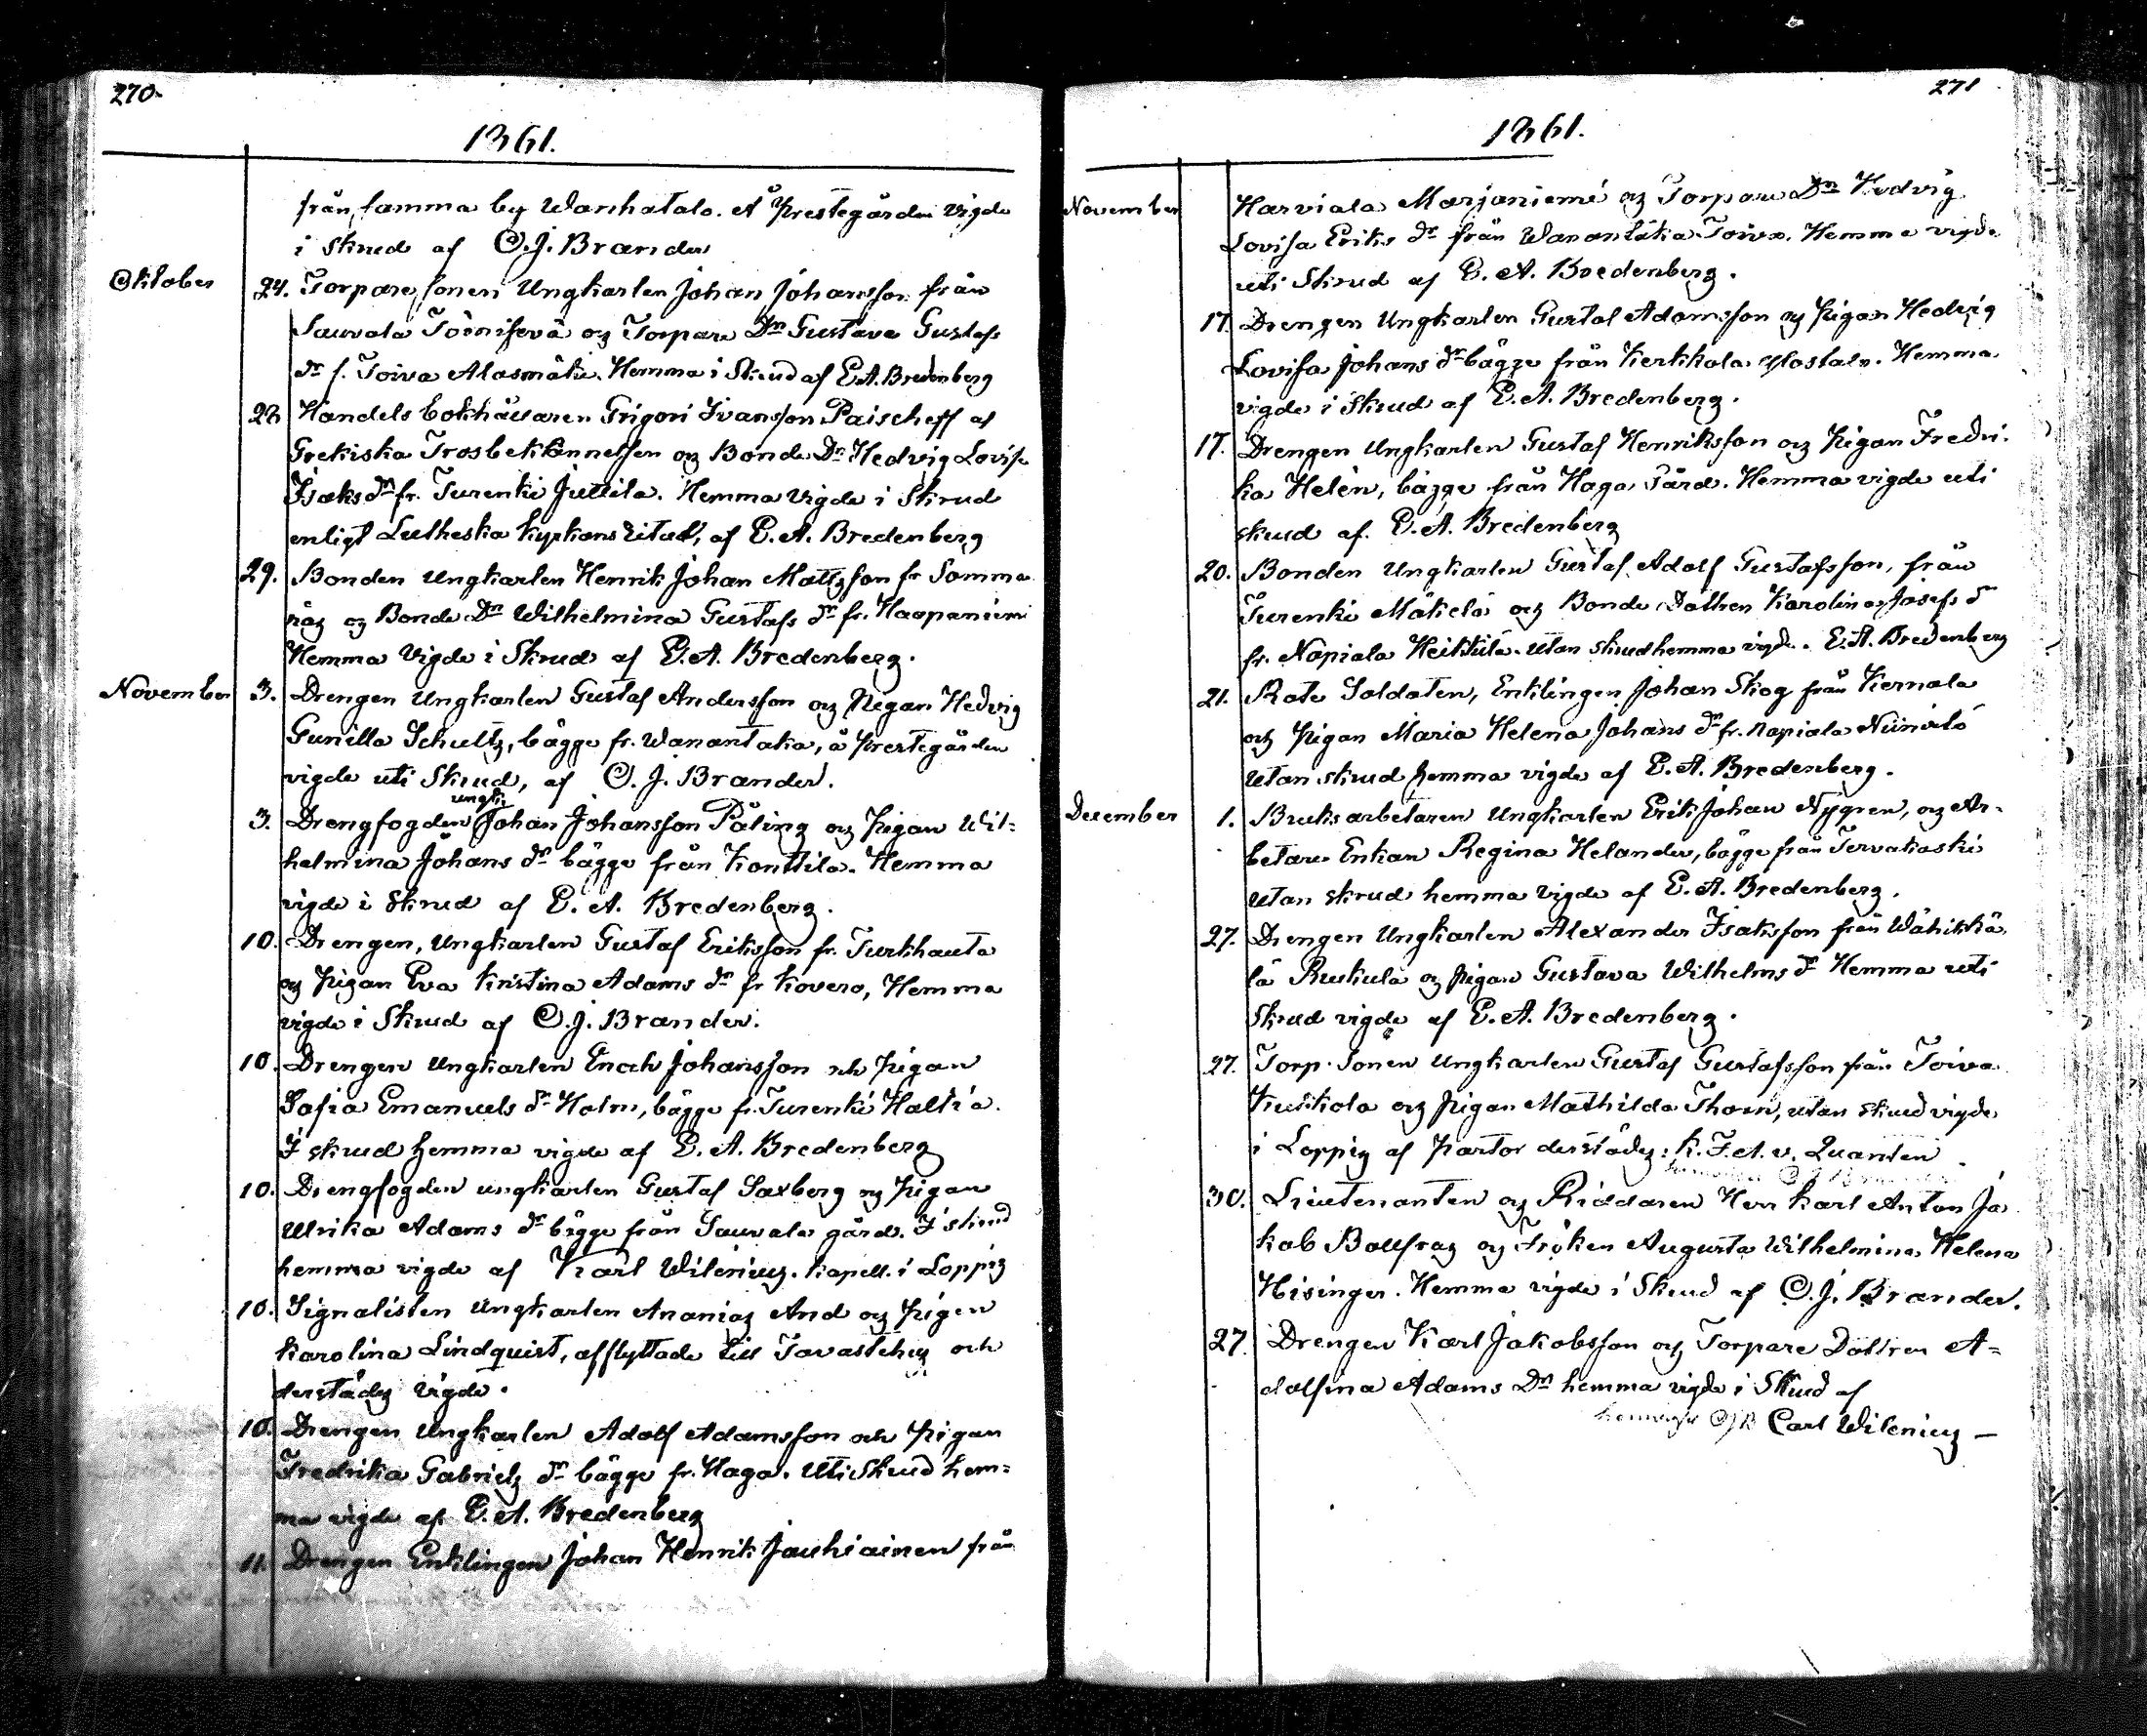 270.
1861.
från samma by Wanhatalo. A Prestegården vigde
i skrud af C. J. Brander
Oktober 24. Torpare sonen Ungkarlen Johan Johansson från
Sauvala Törnisevä og Torpare Dn Gustava Gustafs
dr f. Toiva Alasmäki. Hemma i Skrud af E. A. Bredenberg
28 Handels bokhållaren Grigori Ivansson Paischeff af
Grekiska Trosbekkännelsen og Bonde Dn Hedvig Lovisa
Isaks dr fr. Turenki Juttila. Hemma vigde i Skrud
enligt Lutheska kyrkans ritual, af E. A. Bredenberg
29. Bonden Ungkarlen Henrik Johan Mattsson fr Somma
näs og Bonde Dn Wilhelmina Gustafs dr fr. Haapaniemi
Hemma Vigde i Skrud af E. A. Bredenberg.
November 3. Drengen Ungkarlen Gustaf Andersson og Pigan Hedvig
Gunilla Schultz, bägge fr. Wanantaka, å Prestegården
vigde uti Skrud, af C. J. Brander.
3. Drengfogden ungk. Johan Johansson Påling og Pigan Wil=
helmina Johans dr bägge från Konttila. Hemma
vigde i Skrud af E. A. Bredenberg.
10. Drengen, Ungkarlen Gustaf Eriksson fr. Turkhauta
og Pigan Eva Kristina Adams dr fr Kovero, Hemma
vigde i Skrud af C. J. Brander.
10. Drengen Ungkarlen Enoch Johansson och Pigan
Sofia Emanuels dr Holm, bägge fr. Turenki Haltia.
I skrud hemma vigde af E. A. Bredenberg
10. Drengfogden ungkarlen Gustaf Saxberg og Pigan
Ulrika Adams dr bägge från Sauvala gård. I skrud
hemma vigde af Karl Wilenius. Kapell. i Loppis
10. Signalisten Ungkarlen Ananias And og Pigan
Karolina Lindquist, afflyttade till Tavastehus och
derstädes vigde.
10. Drengen Ungkarlen Adolf Adamsson och Pigan
Fredrika Gabriels dr bägge fr. Haga. Uti Skrud hem=
ma vigde af E. A. Bredenberg
11. Drengen Enklingen Johan Henrik Jauhiainen från
271
1861.
November Harviala Marjaniemi og Torpare Dn Hedvig
Lovisa Eriks dr från Wanantaka Toiva. Hemma vigde
uti Skrud af E. A. Bredenberg.
17. Drengen Ungkarlen Gustaf Adamsson og Pigan Hedvig
Lovisa Johans dr bägge från Kerkkola Ylöstalo. Hemma
vigde i Skrud af E. A. Bredenberg.
17. Drengen Ungkarlen Gustaf Henriksson og Pigan Fredri=
ka Helén, bägge från Haga Gård. Hemma vigde uti
skrud af. E. A. Bredenberg
20. Bonden Ungkarlen Gustaf Adolf Gustafsson, från
Turenki Mäkelä og Bonde Dottren Karolina Josefs dr
fr. Napiala Heikkilä. utan skrud hemma vigde. E. A. Bredenberg
21. Rote Soldaten, Enklingen Johan Skog från Kernala
och Pigan Maria Helena Johans dr fr. Napiala Niinistö
utan skrud hemma vigde af E. A. Bredenberg.
December 1. Bruks arbetaren Ungkarlen Erik Johan Nygren, og Ar=
betare Enkan Regina Helander, bägge från Tervakoski
utan skrud hemma vigde af E. A. Bredenberg.
27. Drengen Ungkarlen Alexander Isaksson från Wähikkä
lä Ruskula og Pigan Gustava Wilhelms dr Hemma uti
Skrud vigde af E. A. Bredenberg.
27. Torp. Sonen Ungkarlen Gustaf Gustafsson från Toiva
Kukkola og Pigan Mathilda Thorn, utan skrud vigde
i Loppis af Pastor derstädes: K. F. A. v. Quanten
30. Lieutenanten og Riddaren Herr Karl Anton Ja
kob Ballfras og Fröken Augusta Wilhelmina Helena
Hisinger. Hemma vigde i Skrud af C. J. Brander.
27. Drengen Karl Jakobsson og Torpare Dottren A=
dolfina Adams Dn hemma vigde i Skrud af
Carl Wilenius —